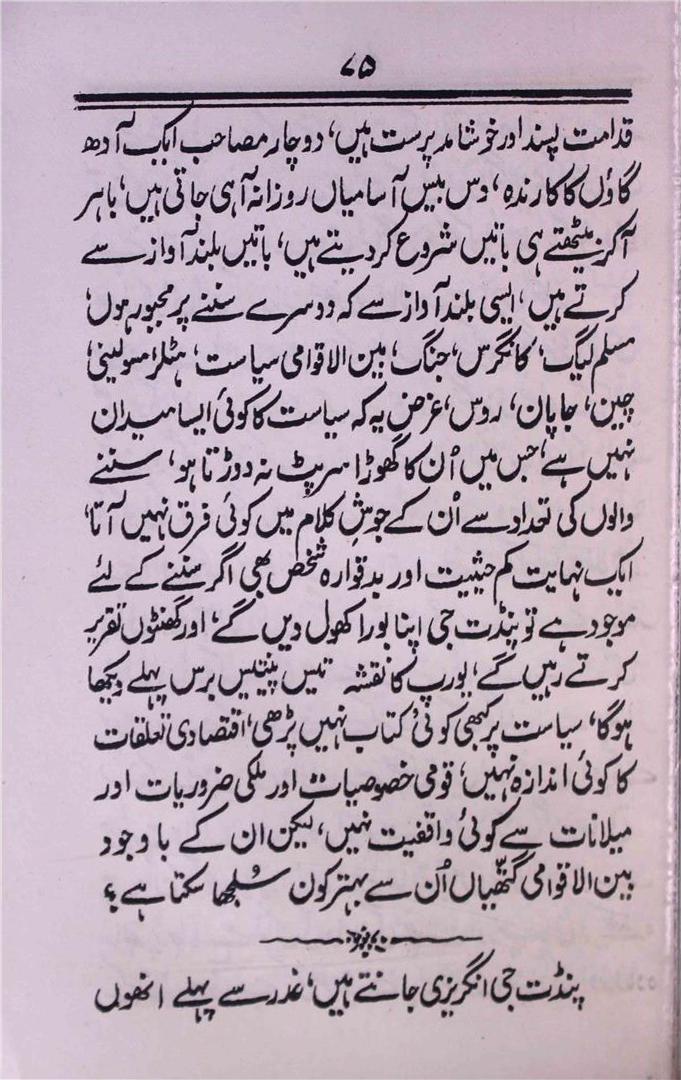 ۷۵
قدامت پسند اور خوشامد پرست ہیں، دوچار مصاحب ایک آدھ
گاؤں کا کارندہ، دس بیس آسامیاں روزانہ آہی جاتی ہیں، باہر
آکر بیٹھتے ہی باتیں شروع کردیتے ہیں، باتیں بلند آواز سے
کرتے ہیں، ایسی بلند آواز سے کہ دوسرے سننے پر مجبور ہوں،
مسلم لیگ، کانگرس، جنگ، بین الاقوامی سیاست، ہٹلر، مسولینی،
چین، جاپان، روس، غرض یہ کہ سیاست کا کوئی ایسا میدان
نہیں ہے، جس میں اُن کا گھوڑا سرپٹ نہ دوڑتا ہو، سننے
والوں کی تعداد سے اُن کے جوشِ کلام میں کوئی فرق نہیں آتا،
ایک نہایت کم حیثیت اور بدقوارہ شخص بھی اگر سننے کے لئے
موجود ہے تو پنڈت جی اپنا بورا کھول دیں گے، اور گھنٹوں تقریر
کرتے رہیں گے، یورپ کا نقشہ تیس پینتیس برس پہلے دیکھا
ہوگا، سیاست پر کبھی کوئی کتاب نہیں پڑھی، اقتصادی تعلقات
کا کوئی اندازہ نہیں، قومی خصوصیات اور ملکی ضروریات اور
میلانات سے کوئی واقفیت نہیں، لیکن ان کے باوجود
بین الاقوامی گتھیاں اُن سے بہتر کون سُلجھا سکتا ہے؟
پنڈت جی انگریزی جانتے ہیں، غدر سے پہلے انھوں